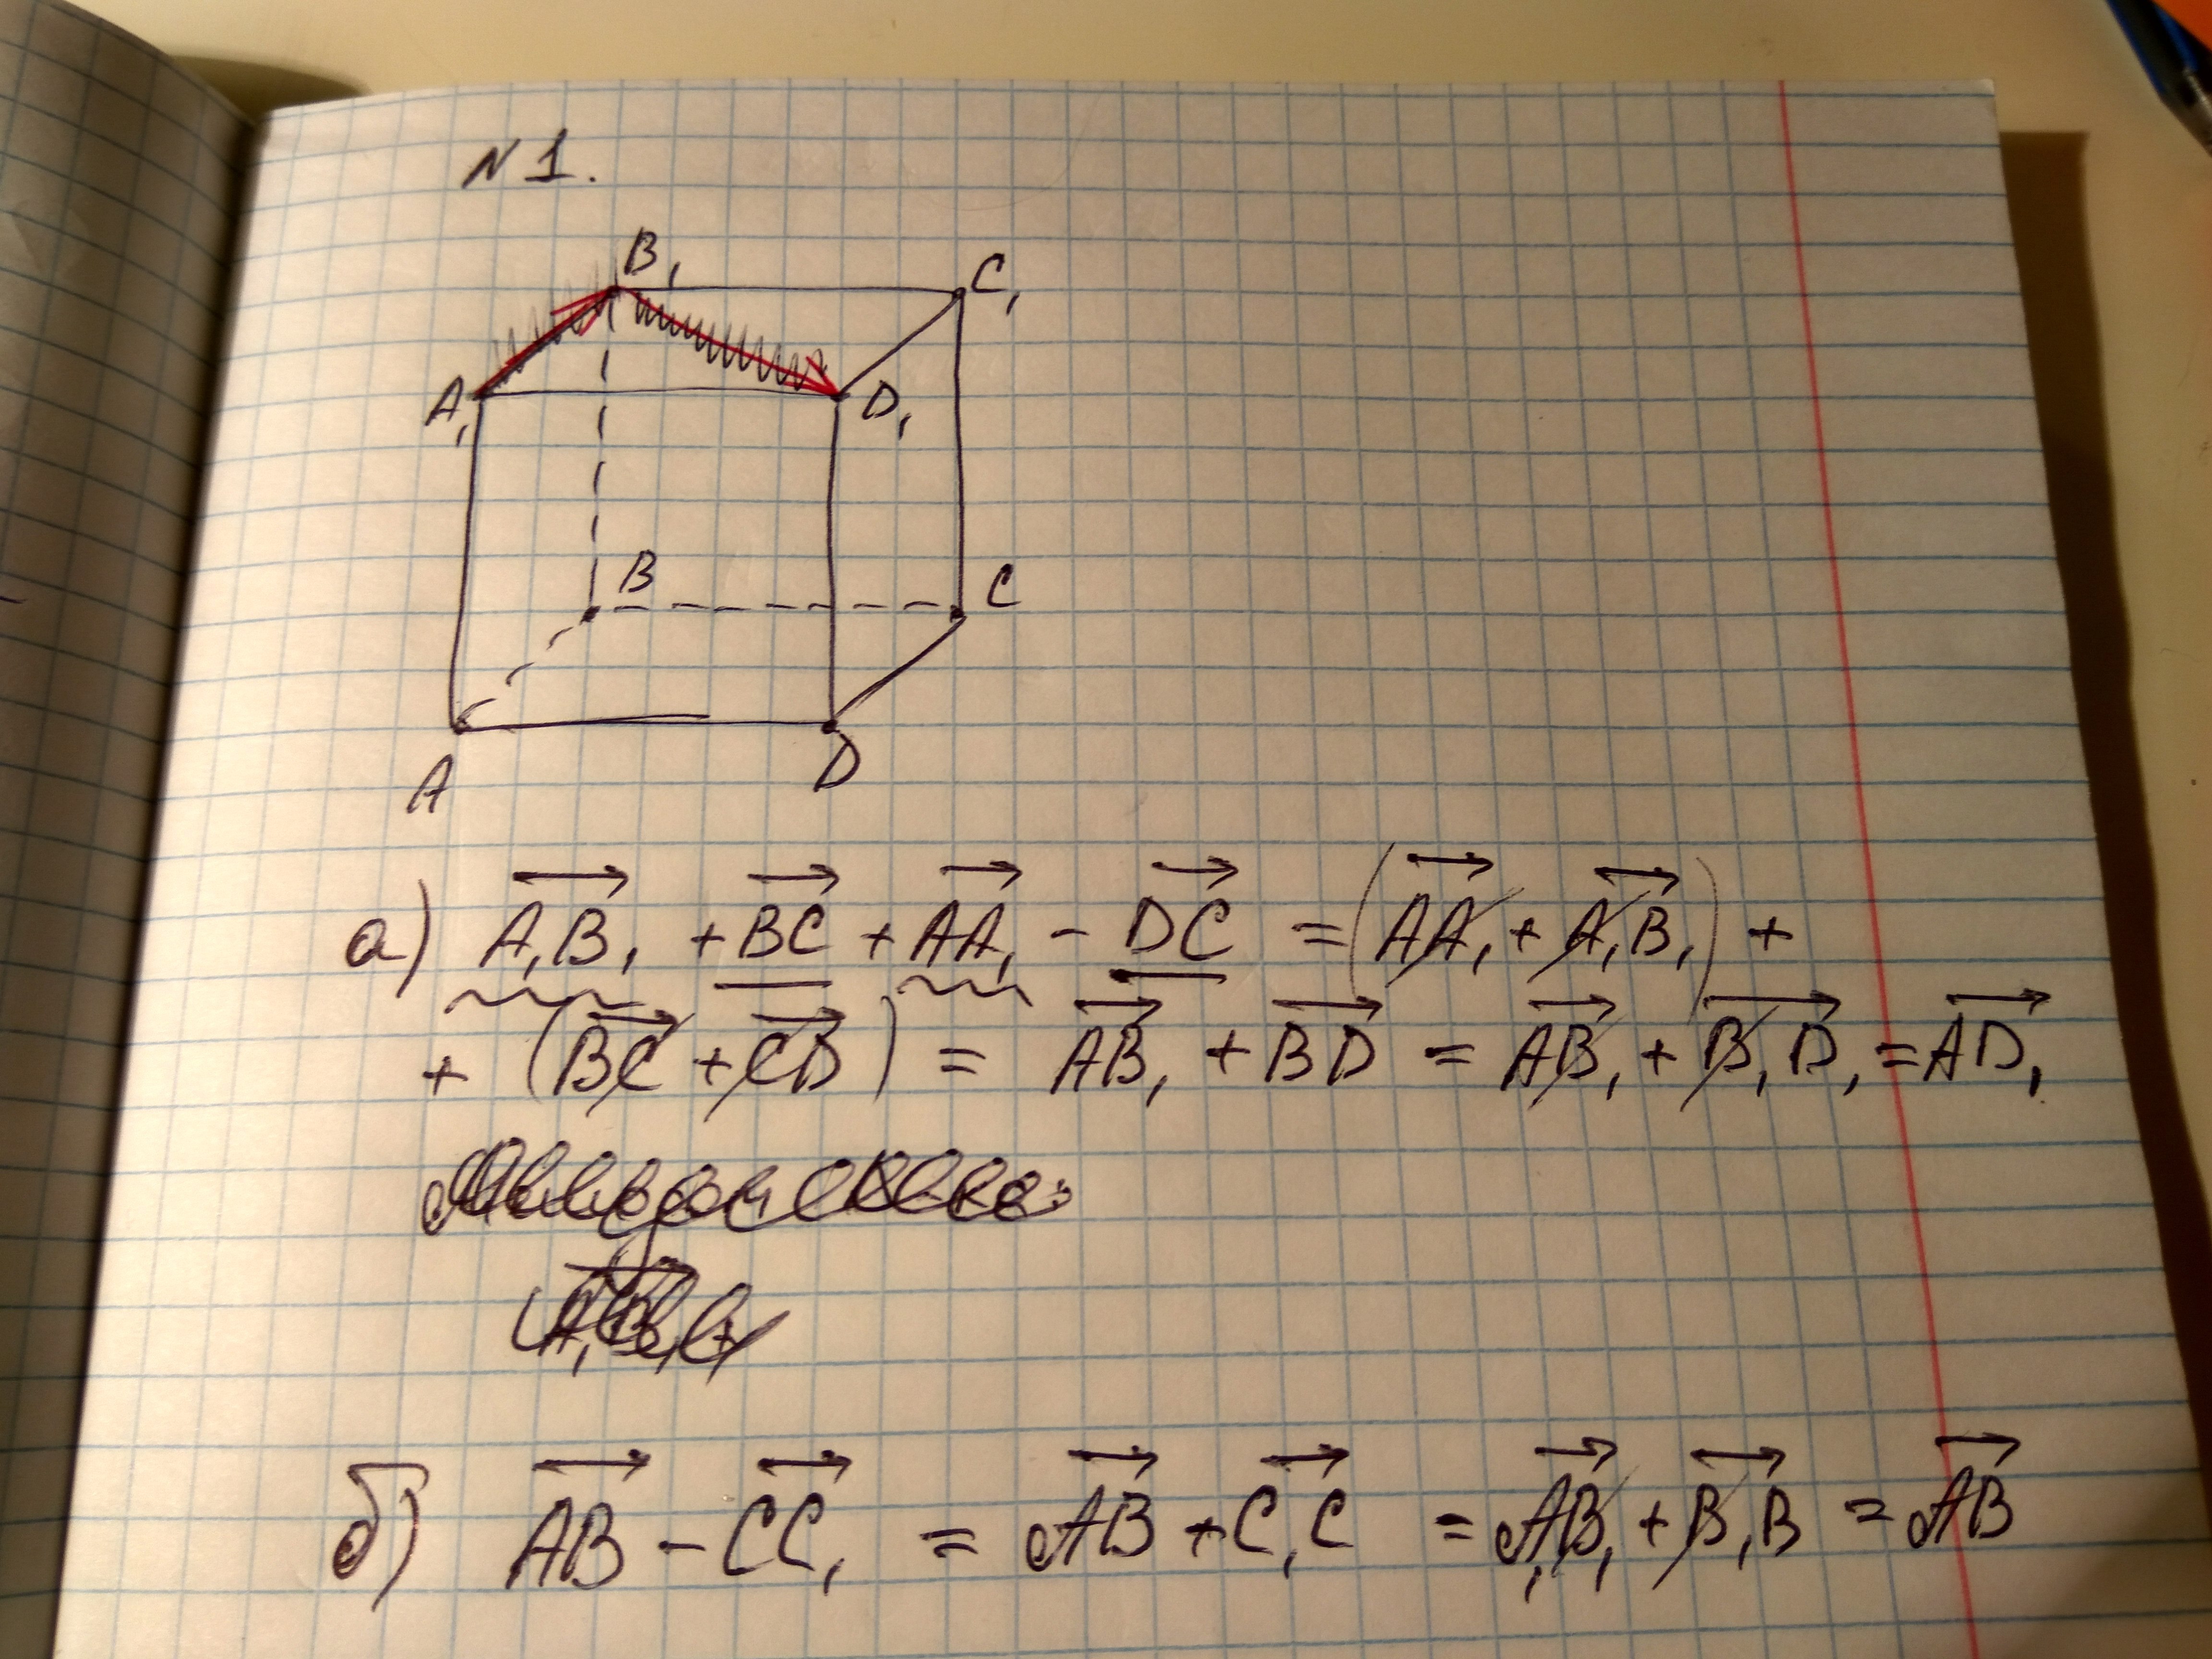 N 1.
B₁
C₁
A₁
D₁
B
C
A
D
а) A₁B₁ + BC + AA₁ - DC = (AA₁ + A₁B₁) +
+ (BC + CD) = AB₁ + BD = AB₁ + B₁D₁ = AD₁
б) AB - CC₁ = AB + C₁C = A₁B₁ + B₁B = AB